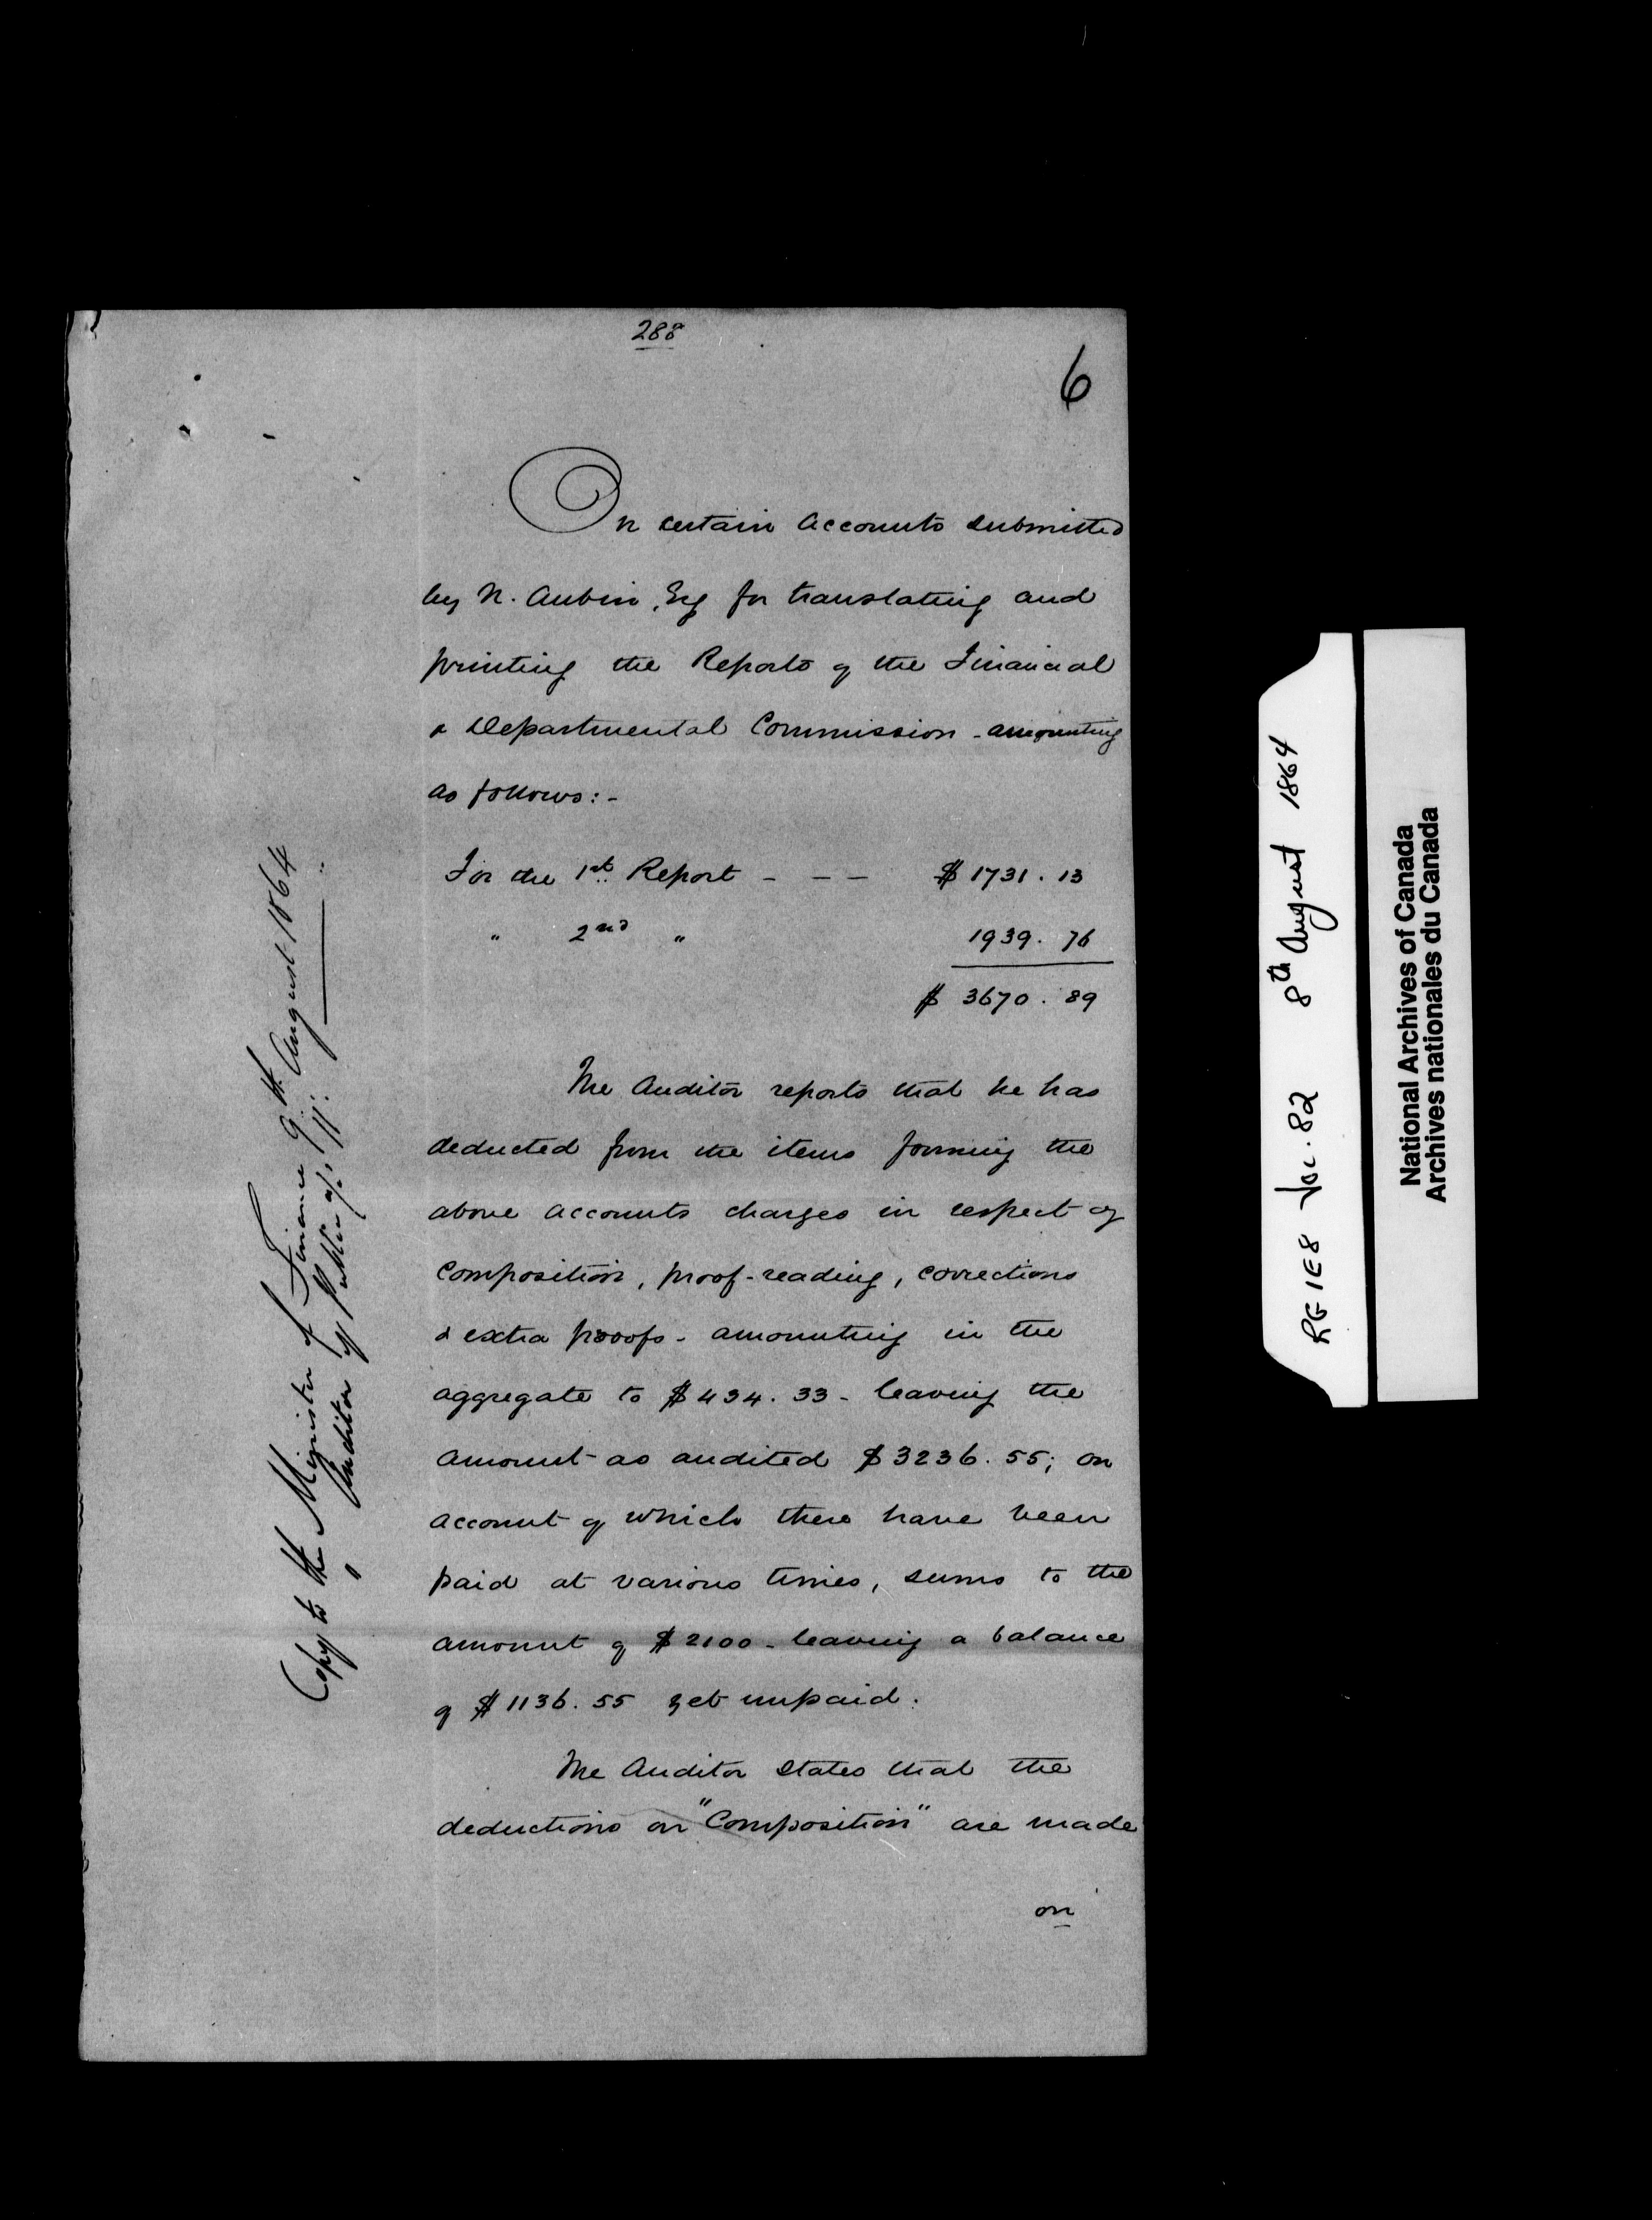 288
6
On certain accounts submitted
by N. Aubin, Esq for translating and
printing the Reports of the Financial
& Departmental Commission - amounting
as follows:-
For the 1st Report - - - $ 1731. 13
" 2nd " 1939. 76
$ 3670. 89
The Auditor reports that he has
deducted from the items forming the
above accounts charges in respect of
composition, proof-reading, corrections
& extra proofs - amounting in the
aggregate to $ 434. 33 - leaving the
amount as audited $ 3236. 55; on
account of which there have been
paid at various times, sums to the
amount of $ 2100 - leaving a balance
of $ 1136. 55 yet unpaid.
The Auditor states that the
deductions on "Composition" are made
on
Copy to the Minister of Finance 9th August 1864
" Auditor of Public a/cs 11 " "
RG 1 E8 Vol. 82 8th August 1864
National Archives of Canada
Archives nationales du Canada